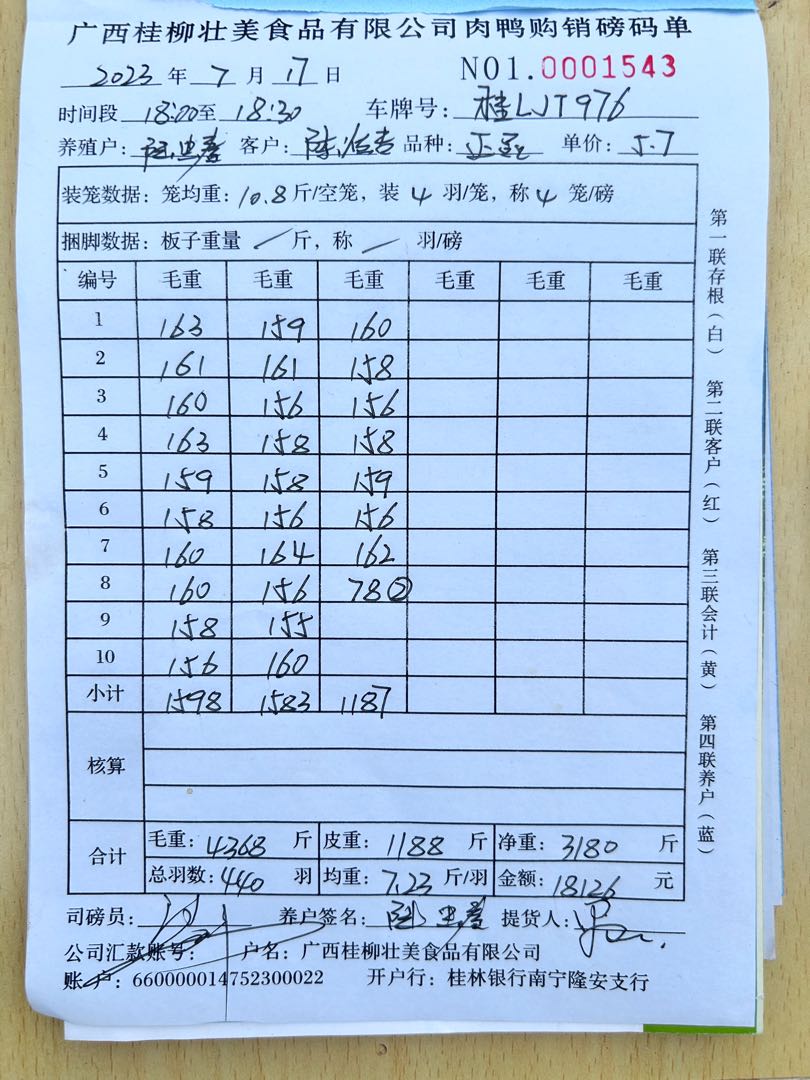 广西桂柳壮美食品有限公司肉鸭购销磅码单
2023 年 7 月 17 日 NO1.0001543
时间段 18:00至 18:30 车牌号: 桂LJT976
养殖户: 客户: 品种: 单价: 5.7
装笼数据: 笼均重: 10.8 斤/空笼, 装 4 羽/笼, 称 4 笼/磅
捆脚数据: 板子重量 / 斤, 称 / 羽/磅
编号 毛重 毛重 毛重 毛重 毛重 毛重
1 163 159 160
2 161 161 158
3 160 156 156
4 163 158 158
5 159 158 159
6 158 156 156
7 160 164 162
8 160 156 78②
9 158 155
10 156 160
小计 1598 1583 1187
核算
合计 毛重: 4368 斤 皮重: 1188 斤 净重: 3180 斤
总羽数: 440 羽 均重: 7.23 斤/羽 金额: 18126 元
司磅员: 养户签名: 提货人:
公司汇款账号: 户名: 广西桂柳壮美食品有限公司
账户: 660000014752300022 开户行: 桂林银行南宁隆安支行
第一联存根(白) 第二联客户(红) 第三联会计(黄) 第四联养户(蓝)